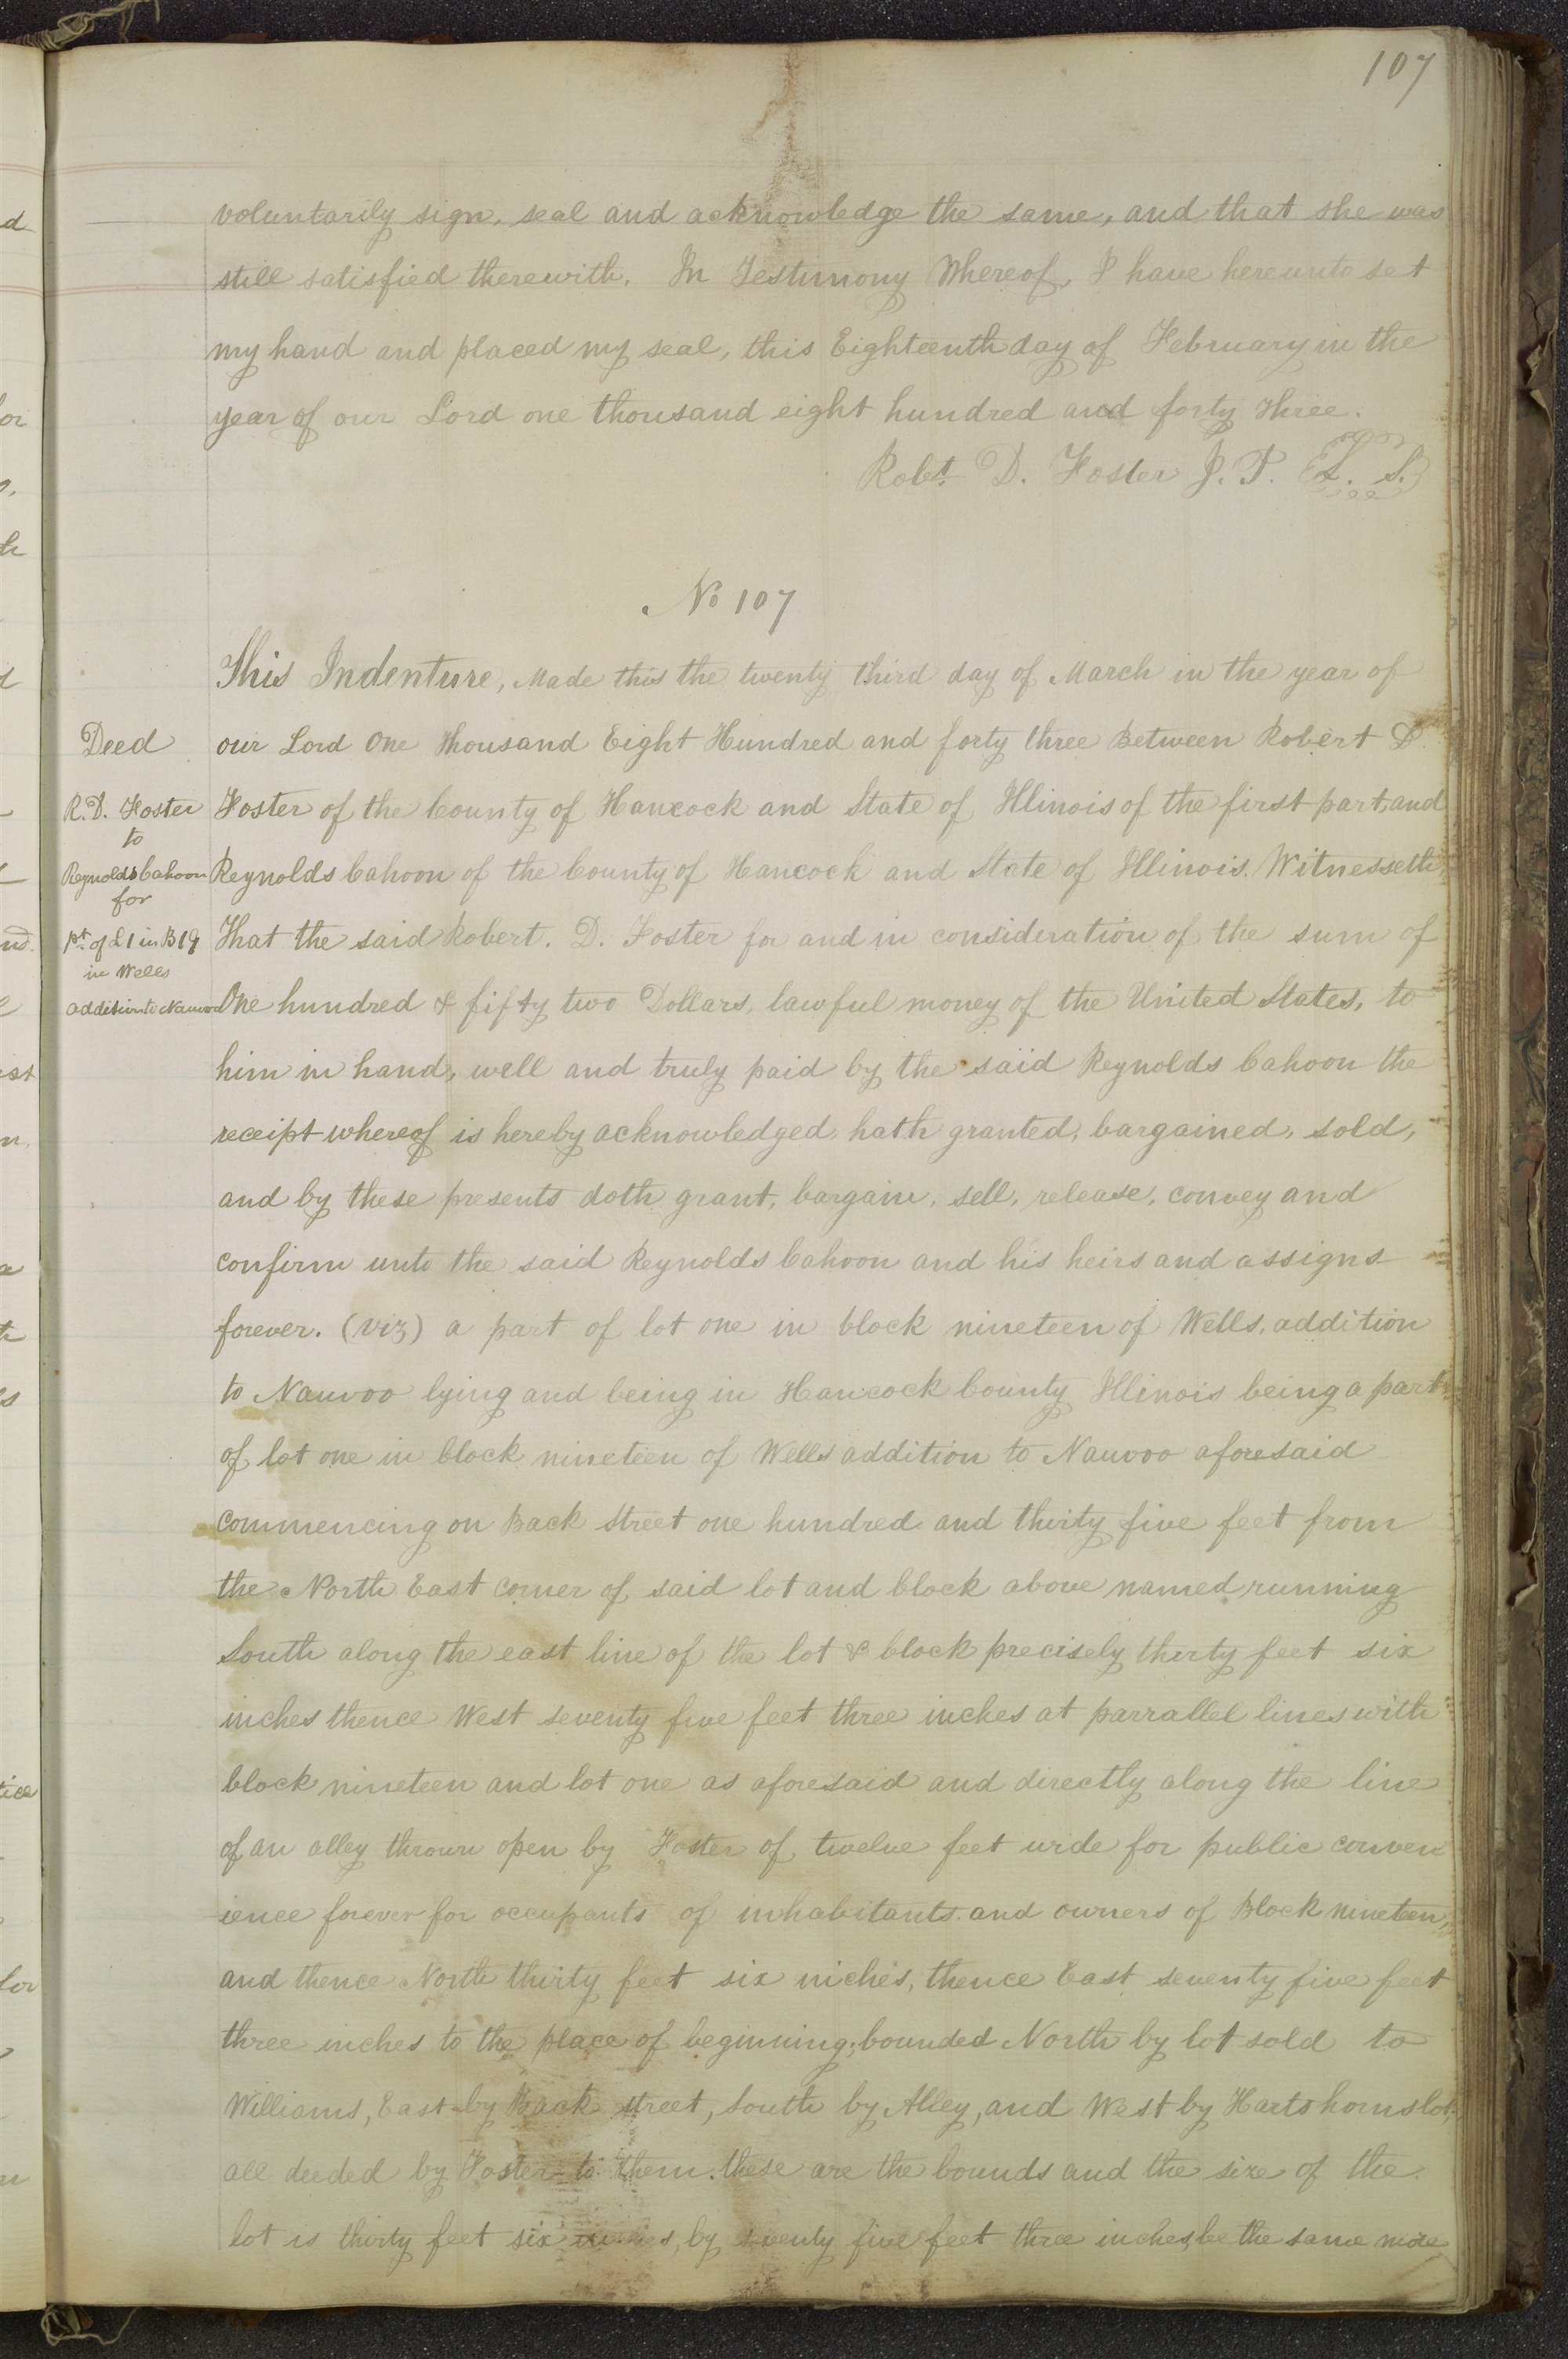 107
voluntarily sign, seal and acknowledge the same, and that she was
still satisfied therewith. In Testimony Whereof, I have hereunto set
my hand and placed my seal, this Eighteenth day of February in the
year of our Lord one thousand eight hundred and forty three.
Robt. D. Foster J. P. L. S.
No 107
This Indenture, Made this the twenty third day of March in the year of
Deed
our Lord One Thousand Eight Hundred and forty three Between Robert D.
R. D. Foster
to
Foster of the County of Hancock and State of Illinois of the first part, and
Reynolds Cahoon
for
Reynolds Cahoon of the County of Hancock and State of Illinois. Witnesseth,
pt of L 1 in B 19
in Wells
That the said Robert. D. Foster for and in consideration of the sum of
addition to Nauvoo
One hundred & fifty two Dollars, lawful money of the United States, to
him in hand, well and truly paid by the said Reynolds Cahoon the
receipt whereof is hereby acknowledged, hath granted, bargained, sold,
and by these presents doth grant, bargain, sell, release, convey and
confirm unto the said Reynolds Cahoon and his heirs and assigns
forever. (viz) a part of lot one in block nineteen of Wells, addition
to Nauvoo lying and being in Hancock County Illinois being a part
of lot one in block nineteen of Wells addition to Nauvoo aforesaid
commencing on Back Street one hundred and thirty five feet from
the North East corner of said lot and block above named running
South along the east line of the lot & block precisely thirty feet six
inches thence West seventy five feet three inches at parrallel lines with
block nineteen and lot one as aforesaid and directly along the line
of an alley thrown open by Foster of twelve feet wide for public conven
ience forever for occupants of inhabitants. and owners of Block nineteen,
and thence North thirty feet six inches, thence East seventy five feet
three inches to the place of beginning; bounded North by lot sold to
Williams, East by Back street, South by Alley, and West by Hartshorns lot,
all deeded by Foster to them. these are the bounds and the size of the
lot is thirty feet six inches, by seventy five feet three inches, be the same more